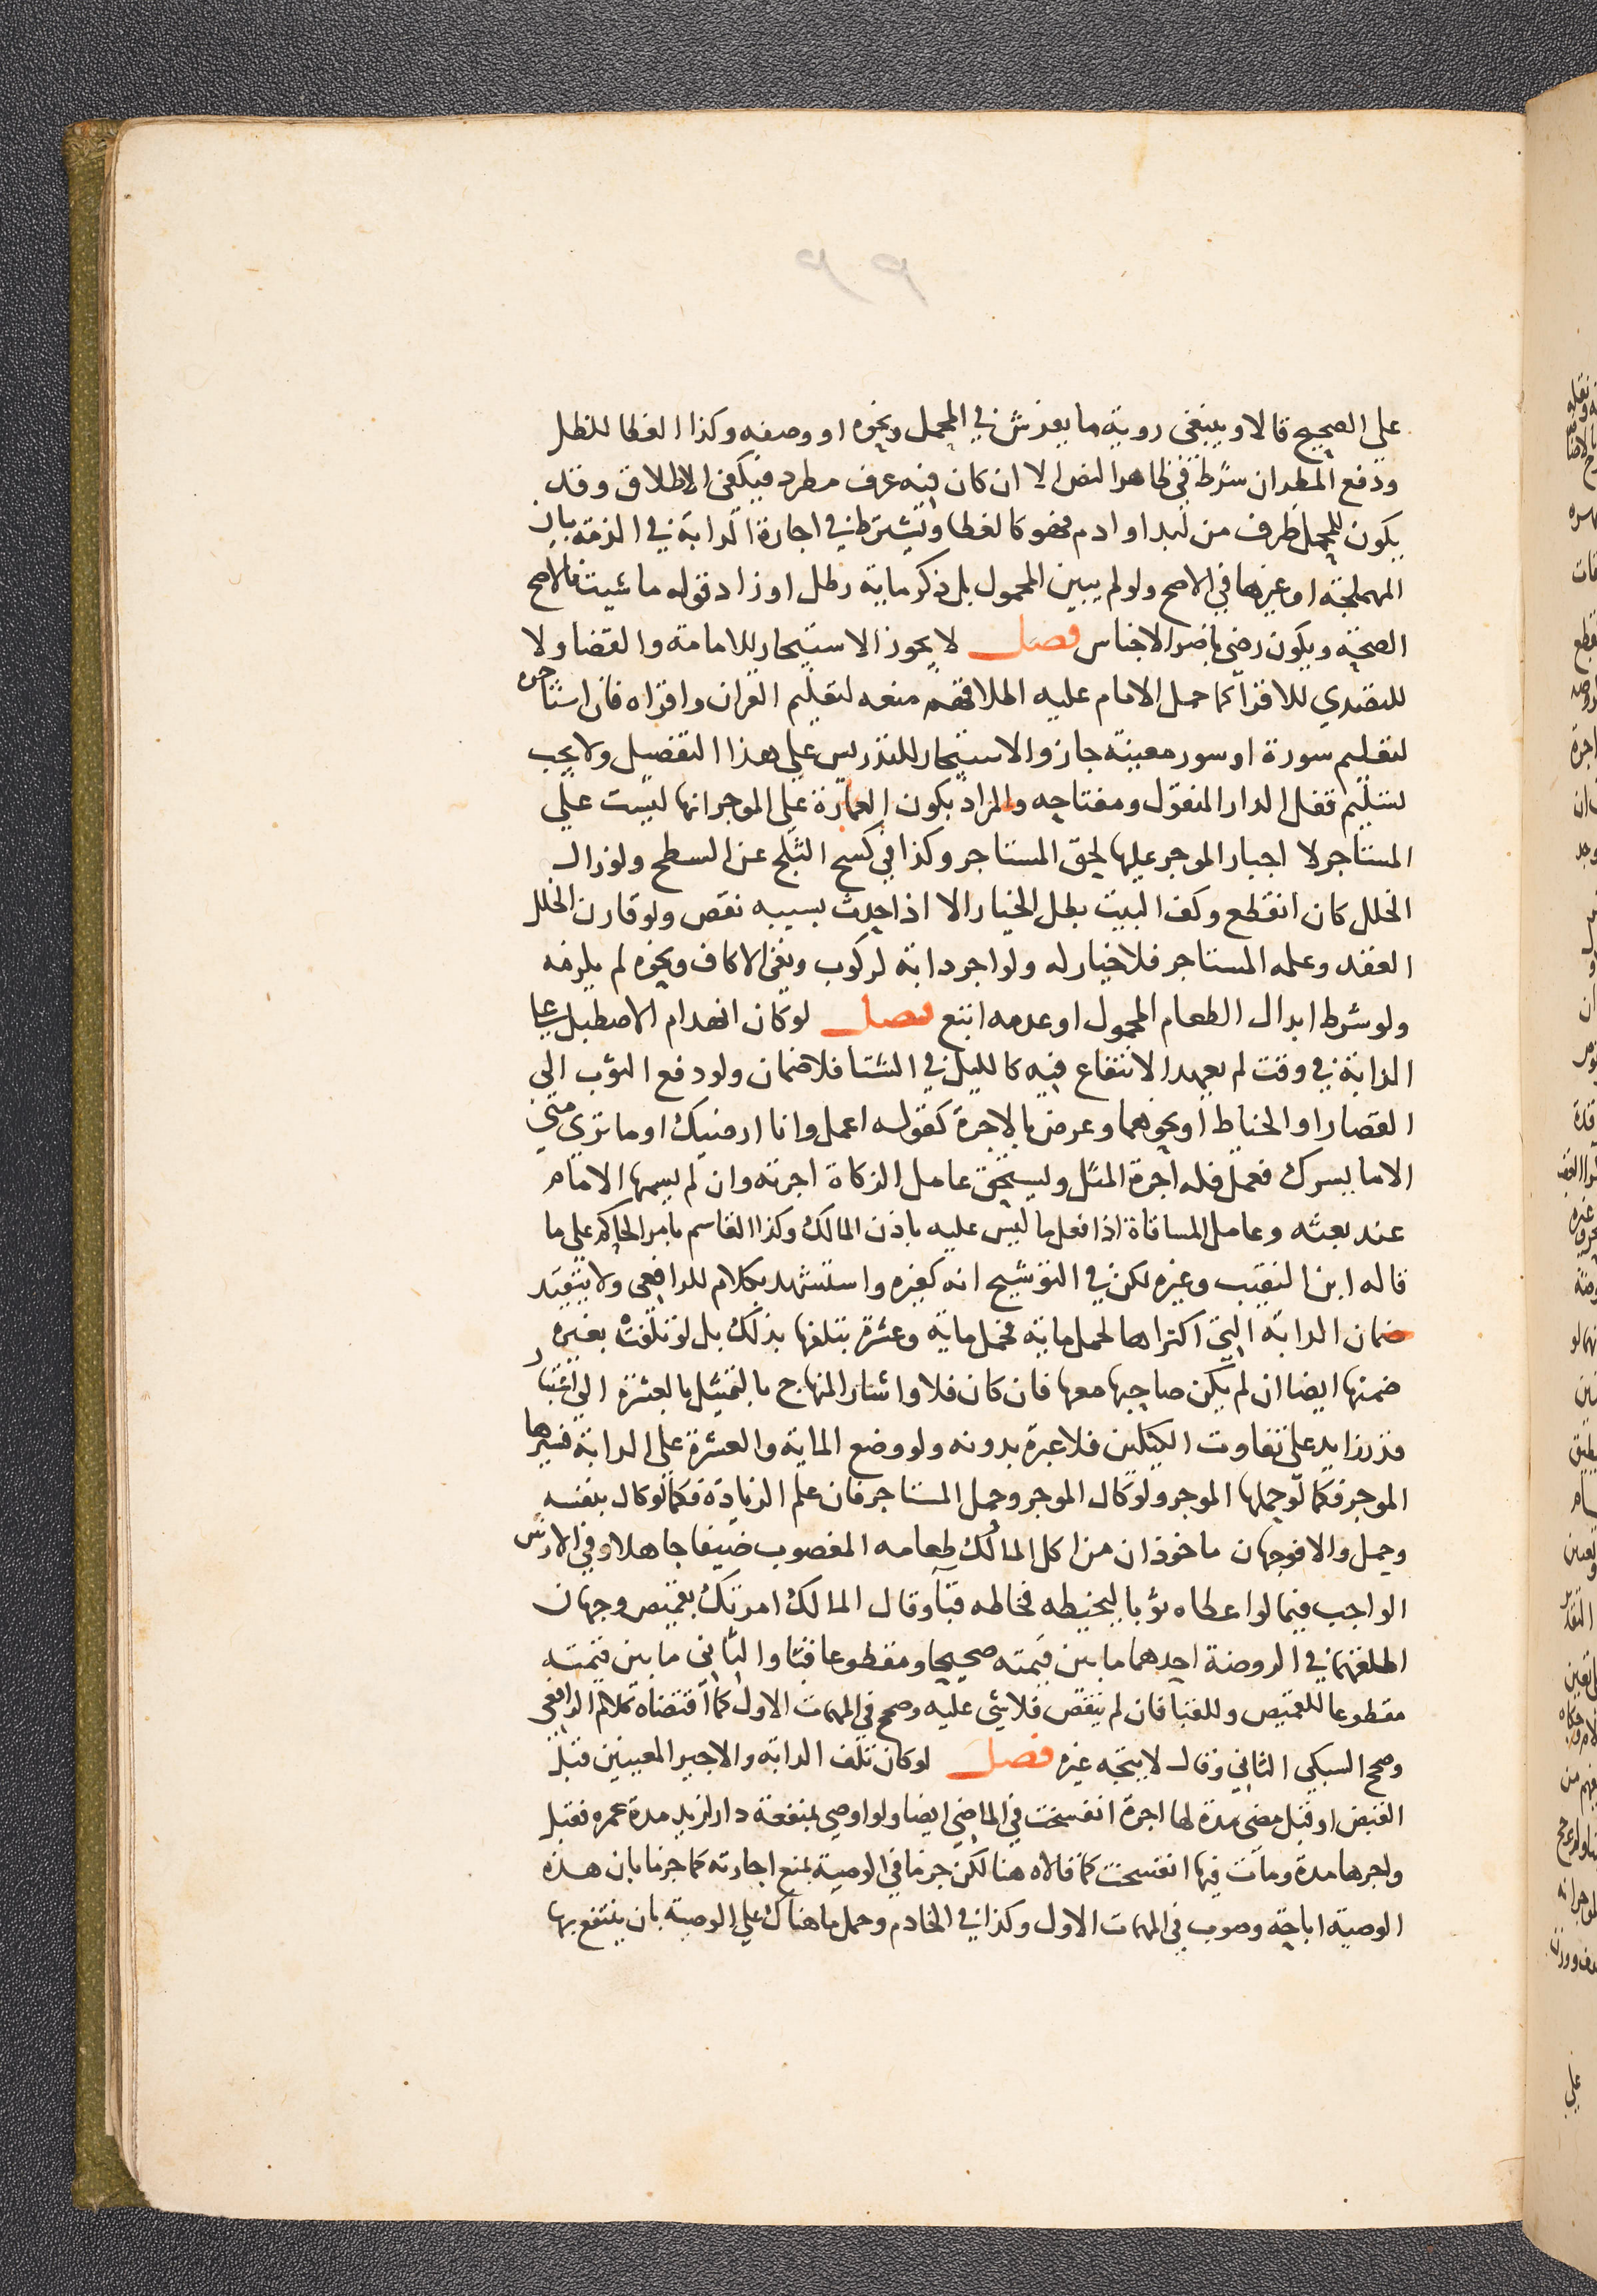 على الصحيح قالا وينبغى روية ما يفرش في المحمل ونحوه او وصفه وكذا الغطا للظل
ودفع المطر ان شرط في ظاهر النص الا ان كان فيه عرف مطرد فيكفى الاطلاق وقد
يكون للمحمل ظرف من لبد او ادم فهو كالغطا ويشترط في اجارة الدابة في الذمة بيان
المهملجة او غيرها في الاصح ولو لم يبين المحمول بل ذكر ماية رطل او زاد قوله ما شيت فالاصح
الصحة ويكون رضى باضر الاجناس فصل لا يجوز الاستيجار للامامة والقضا ولا
للتصدي للاقرا كما حمل الامام عليه اطلاقهم منعه لتعليم القران واقراه فان استاجره
لتعليم سورة او سور معينة جاز والاستيجار للتدريس على هذا التفصيل ولا يجب
تسليم قفل الدار المنقول ومفتاحه والمراد بكون العمارة على الموجر انها ليست على
المستاجر لا اجبار الموجر عليها لحق المستاجر وكذا في كسح الثلج عن السطح ولو زال
الخلل كان انقطع وكف البيت بطل الخيار الا اذا حدث بسببه نقص ولو قارن الخلل
العقد وعلمه المستاجر فلا خيار له ولو اجر دابة لركوب ونفى الاكاف ونحوه لم يلزمه
ولو شرط ابدال الطعام المحمول او عدمه اتبع فصل لو كان انهدام الاصطبل على
الدابة في وقت لم يعهد الانتفاع فيه كالليل في الشتا فلا ضمان ولو دفع الثوب الى
القصار او الخياط او نحوهما وعرض بالاجرة كقوله اعمل وانا ارضيك او ما ترى منى
الا ما يسرك فعمل فله اجرة المثل ويستحق عامل الزكاة اجرته وان لم يسمها الامام
عند بعثه وعامل المساقاة اذا فعل ما ليس عليه باذن المالك وكذا القاسم بامر الحاكم على ما
قاله ابن النقيب وغيره لكن في التوشيح انه كغيره واستشهد بكلام للرافعى ولا يتقيد
ضمان الدابة التى اكتراها لحمل ماية فحمل ماية وعشرة بتلفها بذلك بل لو تلفت بغيره
ضمنها ايضا ان لم يكن صاحبها معها فان كان فلا واشار المنهاج بالتمثيل بالعشرة الى اعتبار
قدر زايد على تفاوت الكيلين فلا عبرة بدونه ولو وضع الماية والعشرة على الدابة فسيرها
الموجر فكما لو حملها الموجر ولو كال الموجر وحمل المستاجر فان علم الزيادة فكما لو كال بنفسه
وحمل والا فوجهان ماخوذان من اكل المالك طعامه المغصوب ضيفا جاهلا وفي الارش
الواجب فيما لو اعطاه ثوبا ليخيطه فخاطه قبا وقال المالك امرتك بقميص وجهان
اطلقهما في الروضة احدهما ما بين قيمته صحيحا ومقطوعا قبا والثاني ما بين قيمته
مقطوعا للقميص وللقبا فان لم ينقص فلا شى عليه وصحح في المهمات الاول كما اقتضاه كلام الرافعى
وصحح السبكى الثاني وقال لا يتجه غيره فصل لو كان تلف الدابة والاجير المعينين قبل
القبض او قبل مضى مدة لها اجرة انفسخت في الماضى ايضا ولو اوصى بمنفعة دار لزيد مدة عمره فقبل
واجرها مدة ومات فيها انفسخت كما قالاه هنا لكن جزما في الوصية بمنع اجارته كما جزما بان هذه
الوصية اباحة وصوب في المهمات الاول وكذا في الخادم وحمل ما هناك على الوصية بان ينتفع بها